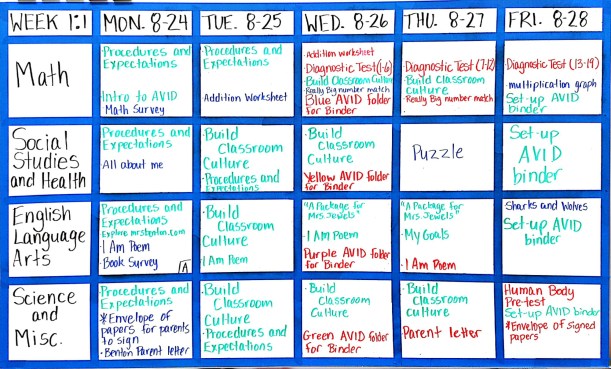 WEEK 1:1
MON. 8-24
TUE. 8-25
WED. 8-26
THU. 8-27
FRI. 8-28
Math
Procedures and
Expectations
Intro to AVID
Math Survey
Procedures and
Expectations
Addition Worksheet
•Addition worksheet
•Diagnostic Test (1-6)
•Build Classroom Culture
•Really Big number match
Blue AVID folder
for Binder
Diagnostic Test (7-12)
•Build classroom
culture
•Really Big number match
Diagnostic Test (13-19)
multiplication graph
Set-up AVID
binder
Social
Studies
and Health
Procedures and
Expectations
All about me
•Build
Classroom
Culture
•Procedures and
Expectations
•Build
Classroom
Culture
Yellow AVID folder
for Binder
Puzzle
Set-up
AVID
binder
English
Language
Arts
Procedures and
Expectations
Explore mrsbenton.com
•I Am Poem
•Book Survey
A
•Build
Classroom
Culture
•I Am Poem
"A Package for
Mrs. Jewels"
•I Am Poem
Purple AVID folder
for Binder
"A Package for
Mrs. Jewels"
•My Goals
•I Am Poem
Sharks and Wolves
Set-up AVID
binder
Science
and
Misc.
Procedures and
Expectations
*Envelope of
papers for parents
to sign
•Benton Parent letter
•Build
Classroom
Culture
•Procedures and
Expectations
•Build
Classroom
Culture
Green AVID folder
for Binder
•Build
Classroom
culture
Parent letter
Human Body
Pre-test
Set-up AVID binder
*Envelope of signed
papers